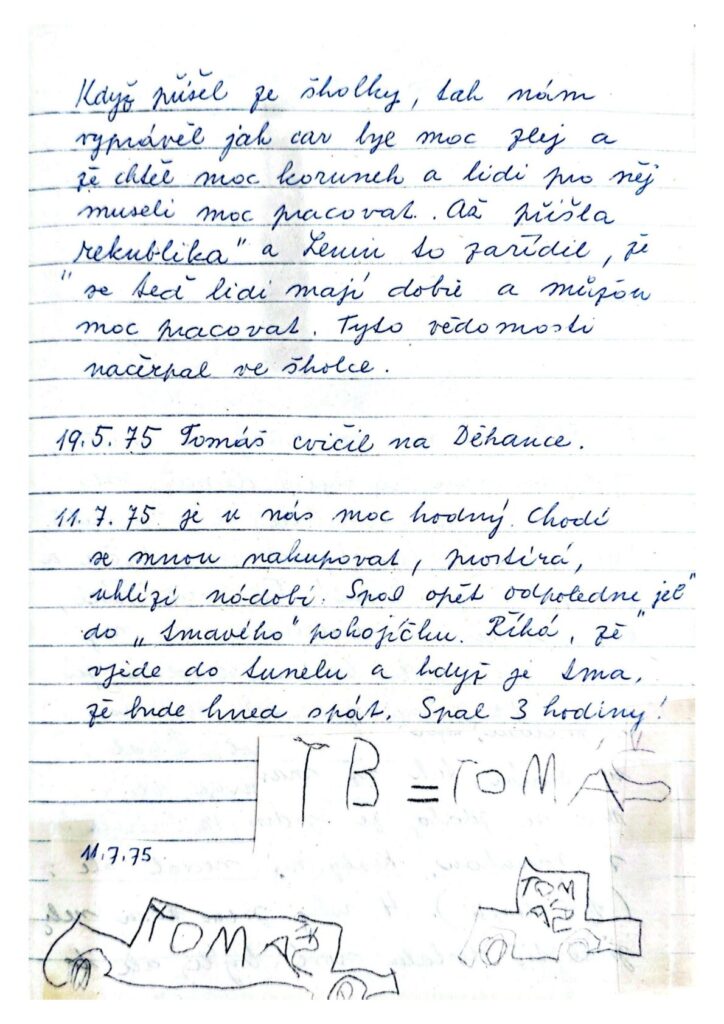 Když přišel ze školky, tak nám
vyprávěl jak car bye moc zlej a
že chtěl moc korunek a lidi pro něj
museli moc pracovat. Až přišla
rekublika" a Lenin to zařídil, že
"se teď lidi mají dobře a můžou
moc pracovat. Tyto vědomosti
načerpal ve školce.
19.5.75 Tomáš cvičil na Děkance.
11.7.75 je u nás moc hodný. Chodí
se mnou nakupovat, prostírá,
uklízí nádobí. Spal opět odpoledne jel"
do „tmavého" pokojíčku. Říká, že "
vjede do tunelu a když je tma,
že bude hned spát. Spal 3 hodiny!
TB = TOMÁŠ
11.7.75
TOMÁŠ
TOM
AŠ